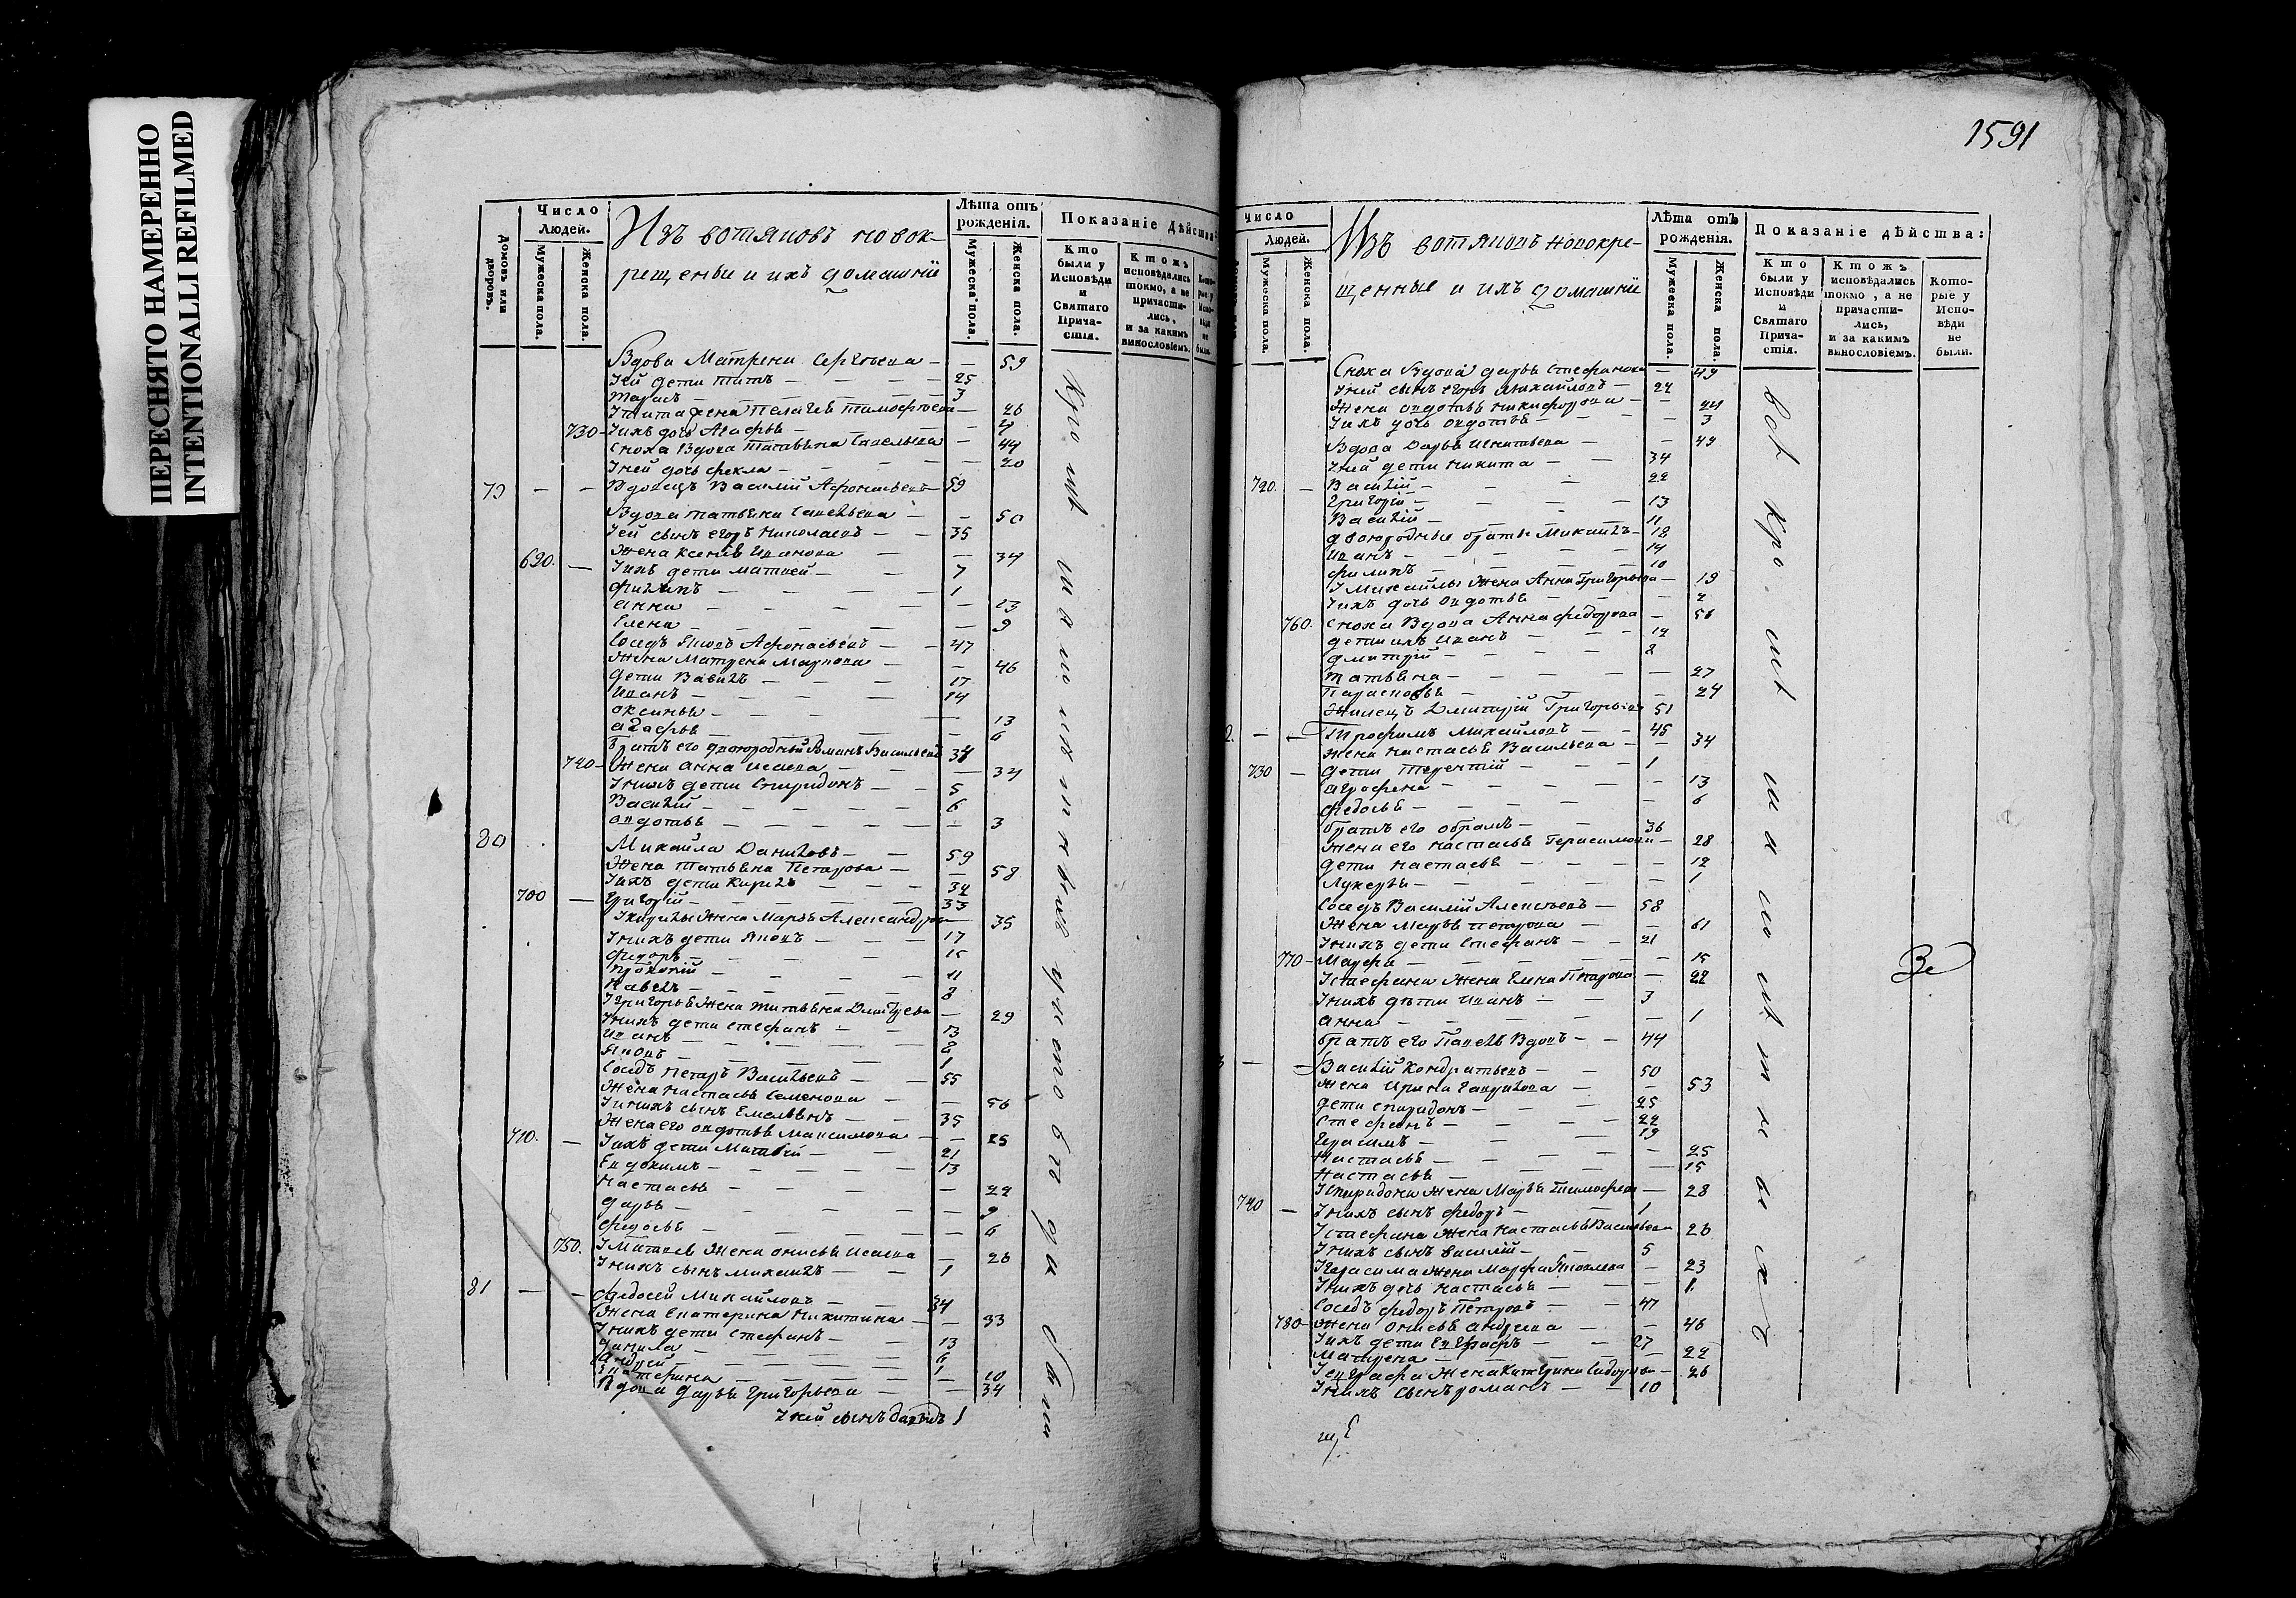 ПЕРЕСНЯТО НАМЕРЕННО
INTENTIONALLI REFILMED
1591
Домовъ или дворовъ.
Число Людей.
Мужеска пола.
Женска пола.
Изъ вотяковъ новок-
рещеные и ихъ домашнiе
Лѣта отъ рожденiя.
Мужеска пола.
Женска пола.
Показанiе Дѣйства
Кто были у Исповѣди и Святаго Прича-стiя.
Ктожъ исповѣдались токмо, а не причасти-лись, и за какимъ винословiемъ.
Вдова Матрена Сергѣева — — 59
Ѵей дети титъ — — — — 25
тарасъ — — — — 3
Ѵтита жена Пелагея тимофѣева — 26
730 — Ѵихъ дочь Агафья — — 4
Сноха Вдова Татьяна Савельева — 44
Ѵней дочь фекла — — — 20
79 — — Вдовецъ Василiй Афонасьевъ — 59
Вдова татьяна Савельева — — 50
Ѵей сынъ егоръ Николаевъ — — 35
690. Жена Ксенья Иванова — — 34
Ѵихъ дети матвей — — 7
филипъ — — — — 1
анна — — — — 13
Елена — — — — 9
Соседъ Яковъ Афонасьевъ — — 47
Жена Матрена Маркова — — 46
дети Вавилъ — — — 17
Иванъ — — — — 14
оксинья — — — — 13
агафья — — — — 6
Братъ его двоюродный Романъ Васильевъ 34
740 — Жена анна Исаева — — 34
Ѵнихъ дети Спиридонъ — — 5
Василiй — — — — 6
овдотья — — — — 3
80 Михайла Даниловъ — — 59
Жена татьяна Петрова — — 58
Ѵихъ дети Кирилъ — — — 34
700 — Григорiй — — — — 33
Ѵкирилы Жена Марья Александрова — 35
Ѵнихъ дети Яковъ — — — 17
федоръ — — — — 15
прокопiй — — — — 11
Павелъ — — — — 8
Ѵгригорья Жена татьяна Дмитрева — 29
Ѵнихъ дети стефанъ — — 13
Иванъ — — — — 8
Яковъ — — — — 1
Соседъ Петръ Васильевъ — — 55
Жена настасья Семенова — — 56
Ѵнихъ сынъ Емельянъ — — 35
Жена его овдотья Максимова — — 25
710. — Ѵихъ дети Матвѣй — — 21
Евдокимъ — — — — 13
настасья — — — — 22
дарья — — — — 9
федосья — — — — 6
750. Ѵматвея Жена онисья Исаева — 26
Ѵнихъ сынъ михаилъ — — 1
81 — — федосей Михайловъ — — 34
Жена Екатерина никитина — — 33
Ѵнихъ дети стефанъ — — 13
данила — — — — 6
Андрей — — — — 1
Екатерина — — — — 10
Вдова Дарья Григорьева — — 34
Ѵней сынъ давыдъ 1
Число Людей.
Мужеска пола.
Женска пола.
Изъ вотяковъ новокре-
щенные и ихъ домашнiе
Лѣта отъ рожденiя.
Мужеска пола.
Женска пола.
Показанiе дѣйства:
Кто были у Исповѣди и Святаго Прича-стiя.
Ктожъ исповѣдались токмо, а не причасти-лись, и за какимъ винословiемъ.
Кото-рые у Испо-вѣди не были.
Сноха Вдова дарья Стефанова — 49
Ѵней сынъ егоръ Михайловъ — 22
Жена овдотья никифорова — — 24
Ѵихъ дочь овдотья — — — 3
Вдова Дарья Игнатьева — — 49
Ѵней дети никита — — 34
720. — Василiй — — — 22
Григорiй — — — 13
Василiй — — — 11
двоюродные братья Михаилъ — 18
Иванъ — — — — 14
филипъ — — — — 10
Ѵмихайлы Жена Анна Григорьева — 19
Ѵихъ дочь овдотья — — — 2
760. Сноха Вдова Анна федорова — 56
дети ихъ Иванъ — — — 12
дмитрiй — — — — 2
татьяна — — — — 27
Парасковья — — — — 24
Жилецъ Дмитрiй Григорьевъ 51
Трофимъ Михайловъ — — 45
жена настасья Васильева — — 34
730 — дети Терентiй — — — 1
агрофена — — — — 13
федосья — — — — 6
братъ его обрамъ — — 36
Жена его настасья Герасимова — 28
дети настасья — — — 12
Лукерья — — — — 1
Соседъ Василiй Алексѣевъ — 58
Жена Марья петрова — — 61
Ѵнихъ дети Стефанъ — — 21
770 — Марфа — — — — 15
Ѵстефана Жена Елена Петрова — 22
Ѵнихъ дѣти Иванъ — — 3
анна — — — — 1
братъ его Павелъ Вдовъ — — 44
Василiй Кондратьевъ — — 50
Жена Ирина Гаврилова — — 53
дети спиридонъ — — — 25
Стефанъ — — — — 22
Герасимъ — — — — 19
Настасья — — — — 25
Настасья — — — — 15
Ѵспиридона Жена Марья Тимофеева — 28
740 — Ѵнихъ сынъ федоръ — — 1
Ѵстефана Жена настасья Васильева 26
Ѵнихъ сынъ василiй — — 5
Ѵгерасима жена Марфа Яковлева — 23
Ѵнихъ дочь настасья — — 1
Соседъ федоръ Петровъ — — 47
780 — Жена онисья андреева — — 46
Ѵихъ дети Евграфъ — — 27
Матрена — — — — 22
Ѵевграфа Жена Катерина Сидорова — 26
Ѵнихъ сынъ романъ — — 10